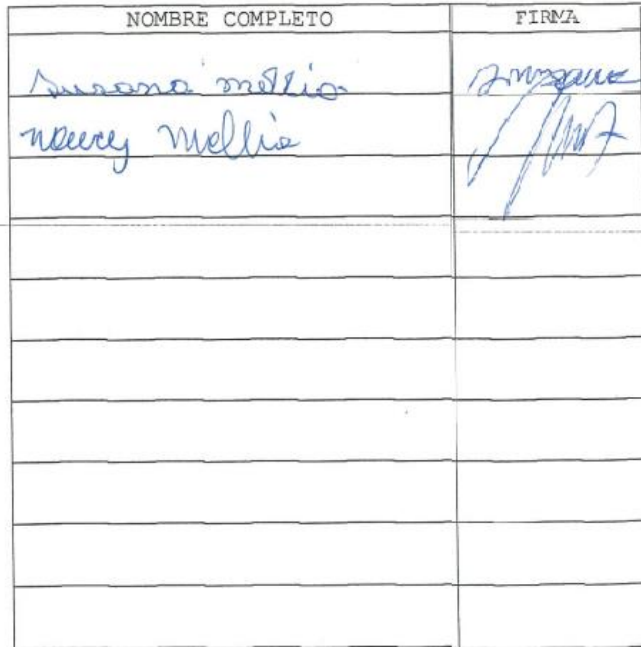 NOMBRE COMPLETO FIRMA
Susana Mellia
Nancy Mellia